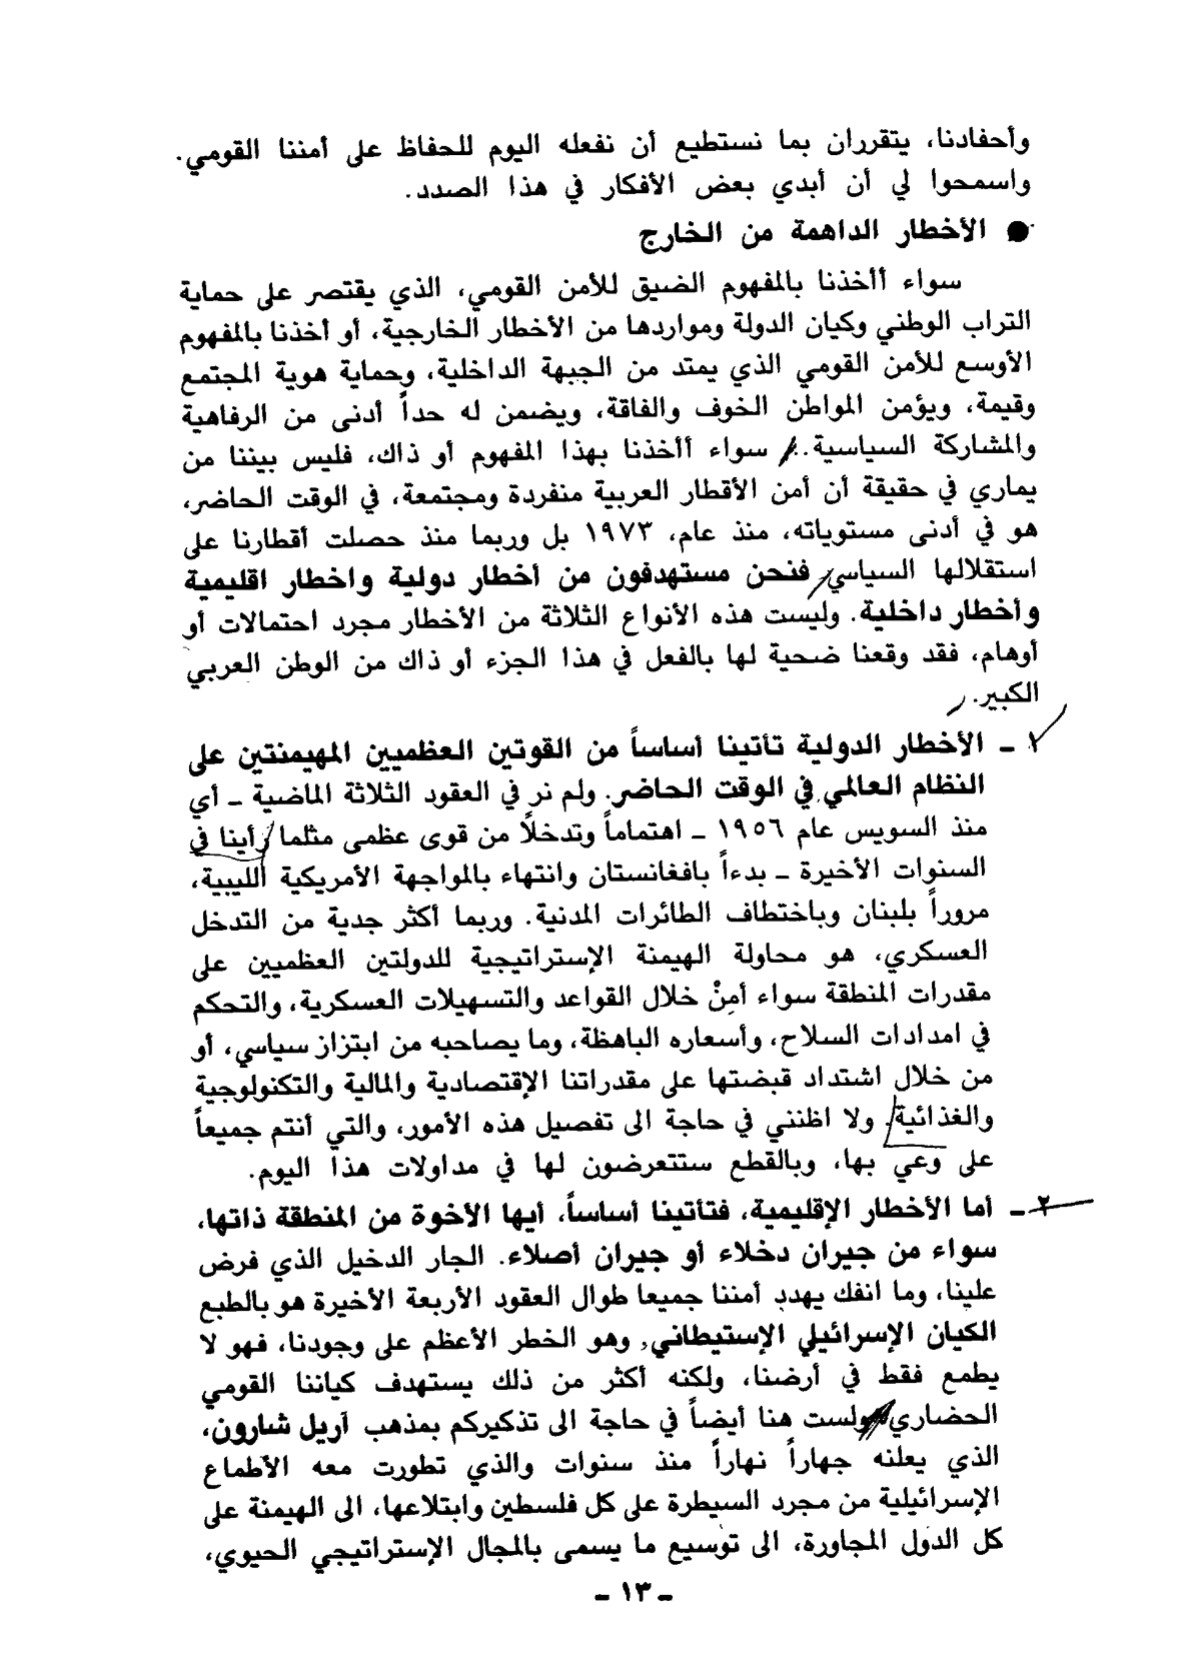 وأحفادنا، يتقرران بما نستطيع أن نفعله اليوم للحفاظ على أمننا القومي.
واسمحوا لي أن أبدي بعض الأفكار في هذا الصدد.
● الأخطار الداهمة من الخارج
سواء أأخذنا بالمفهوم الضيق للأمن القومي، الذي يقتصر على حماية
التراب الوطني وكيان الدولة ومواردها من الأخطار الخارجية، أو أخذنا بالمفهوم
الأوسع للأمن القومي الذي يمتد من الجبهة الداخلية، وحماية هوية المجتمع
وقيمة، ويؤمن المواطن الخوف والفاقة، ويضمن له حداً أدنى من الرفاهية
والمشاركة السياسية.. سواء أأخذنا بهذا المفهوم أو ذاك، فليس بيننا من
يماري في حقيقة أن أمن الأقطار العربية منفردة ومجتمعة، في الوقت الحاضر،
هو في أدنى مستوياته، منذ عام، ١٩٧٣ بل وربما منذ حصلت أقطارنا على
استقلالها السياسي فنحن مستهدفون من أخطار دولية واخطار اقليمية
وأخطار داخلية. وليست هذه الأنواع الثلاثة من الأخطار مجرد احتمالات أو
أوهام، فقد وقعنا ضحية لها بالفعل في هذا الجزء أو ذاك من الوطن العربي
الكبير.
١ - الأخطار الدولية تأتينا أساساً من القوتين العظميين المهيمنتين على
النظام العالمي في الوقت الحاضر. ولم نر في العقود الثلاثة الماضية - أي
منذ السويس عام ١٩٥٦ - اهتماماً وتدخلًا من قوى عظمى مثلما رأينا في
السنوات الأخيرة - بدءاً بافغانستان وانتهاء بالمواجهة الأمريكية الليبية،
مروراً بلبنان وباختطاف الطائرات المدنية. وربما أكثر جدية من التدخل
العسكري، هو محاولة الهيمنة الإستراتيجية للدولتين العظميين على
مقدرات المنطقة سواء أمِنْ خلال القواعد والتسهيلات العسكرية، والتحكم
في امدادات السلاح، وأسعاره الباهظة، وما يصاحبه من ابتزاز سياسي، أو
من خلال اشتداد قبضتها على مقدراتنا الإقتصادية والمالية والتكنولوجية
والغذائية. ولا اظنني في حاجة الى تفصيل هذه الأمور، والتي أنتم جميعاً
على وعي بها، وبالقطع ستتعرضون لها في مداولات هذا اليوم.
٢ - أما الأخطار الإقليمية، فتأتينا أساساً، أيها الأخوة من المنطقة ذاتها،
سواء من جيران دخلاء أو جيران أصلاء. الجار الدخيل الذي فرض
علينا، وما انفك يهدد أمننا جميعا طوال العقود الأربعة الأخيرة هو بالطبع
الكيان الإسرائيلي الإستيطاني, وهو الخطر الأعظم على وجودنا، فهو لا
يطمع فقط في أرضنا، ولكنه أكثر من ذلك يستهدف كياننا القومي
الحضاري ولست هنا أيضاً في حاجة الى تذكيركم بمذهب آريل شارون،
الذي يعلنه جهاراً نهاراً منذ سنوات والذي تطورت معه الأطماع
الإسرائيلية من مجرد السيطرة على كل فلسطين وابتلاعها، الى الهيمنة على
كل الدول المجاورة، الى توسيع ما يسمى بالمجال الإستراتيجي الحيوي،
- ١٣ -